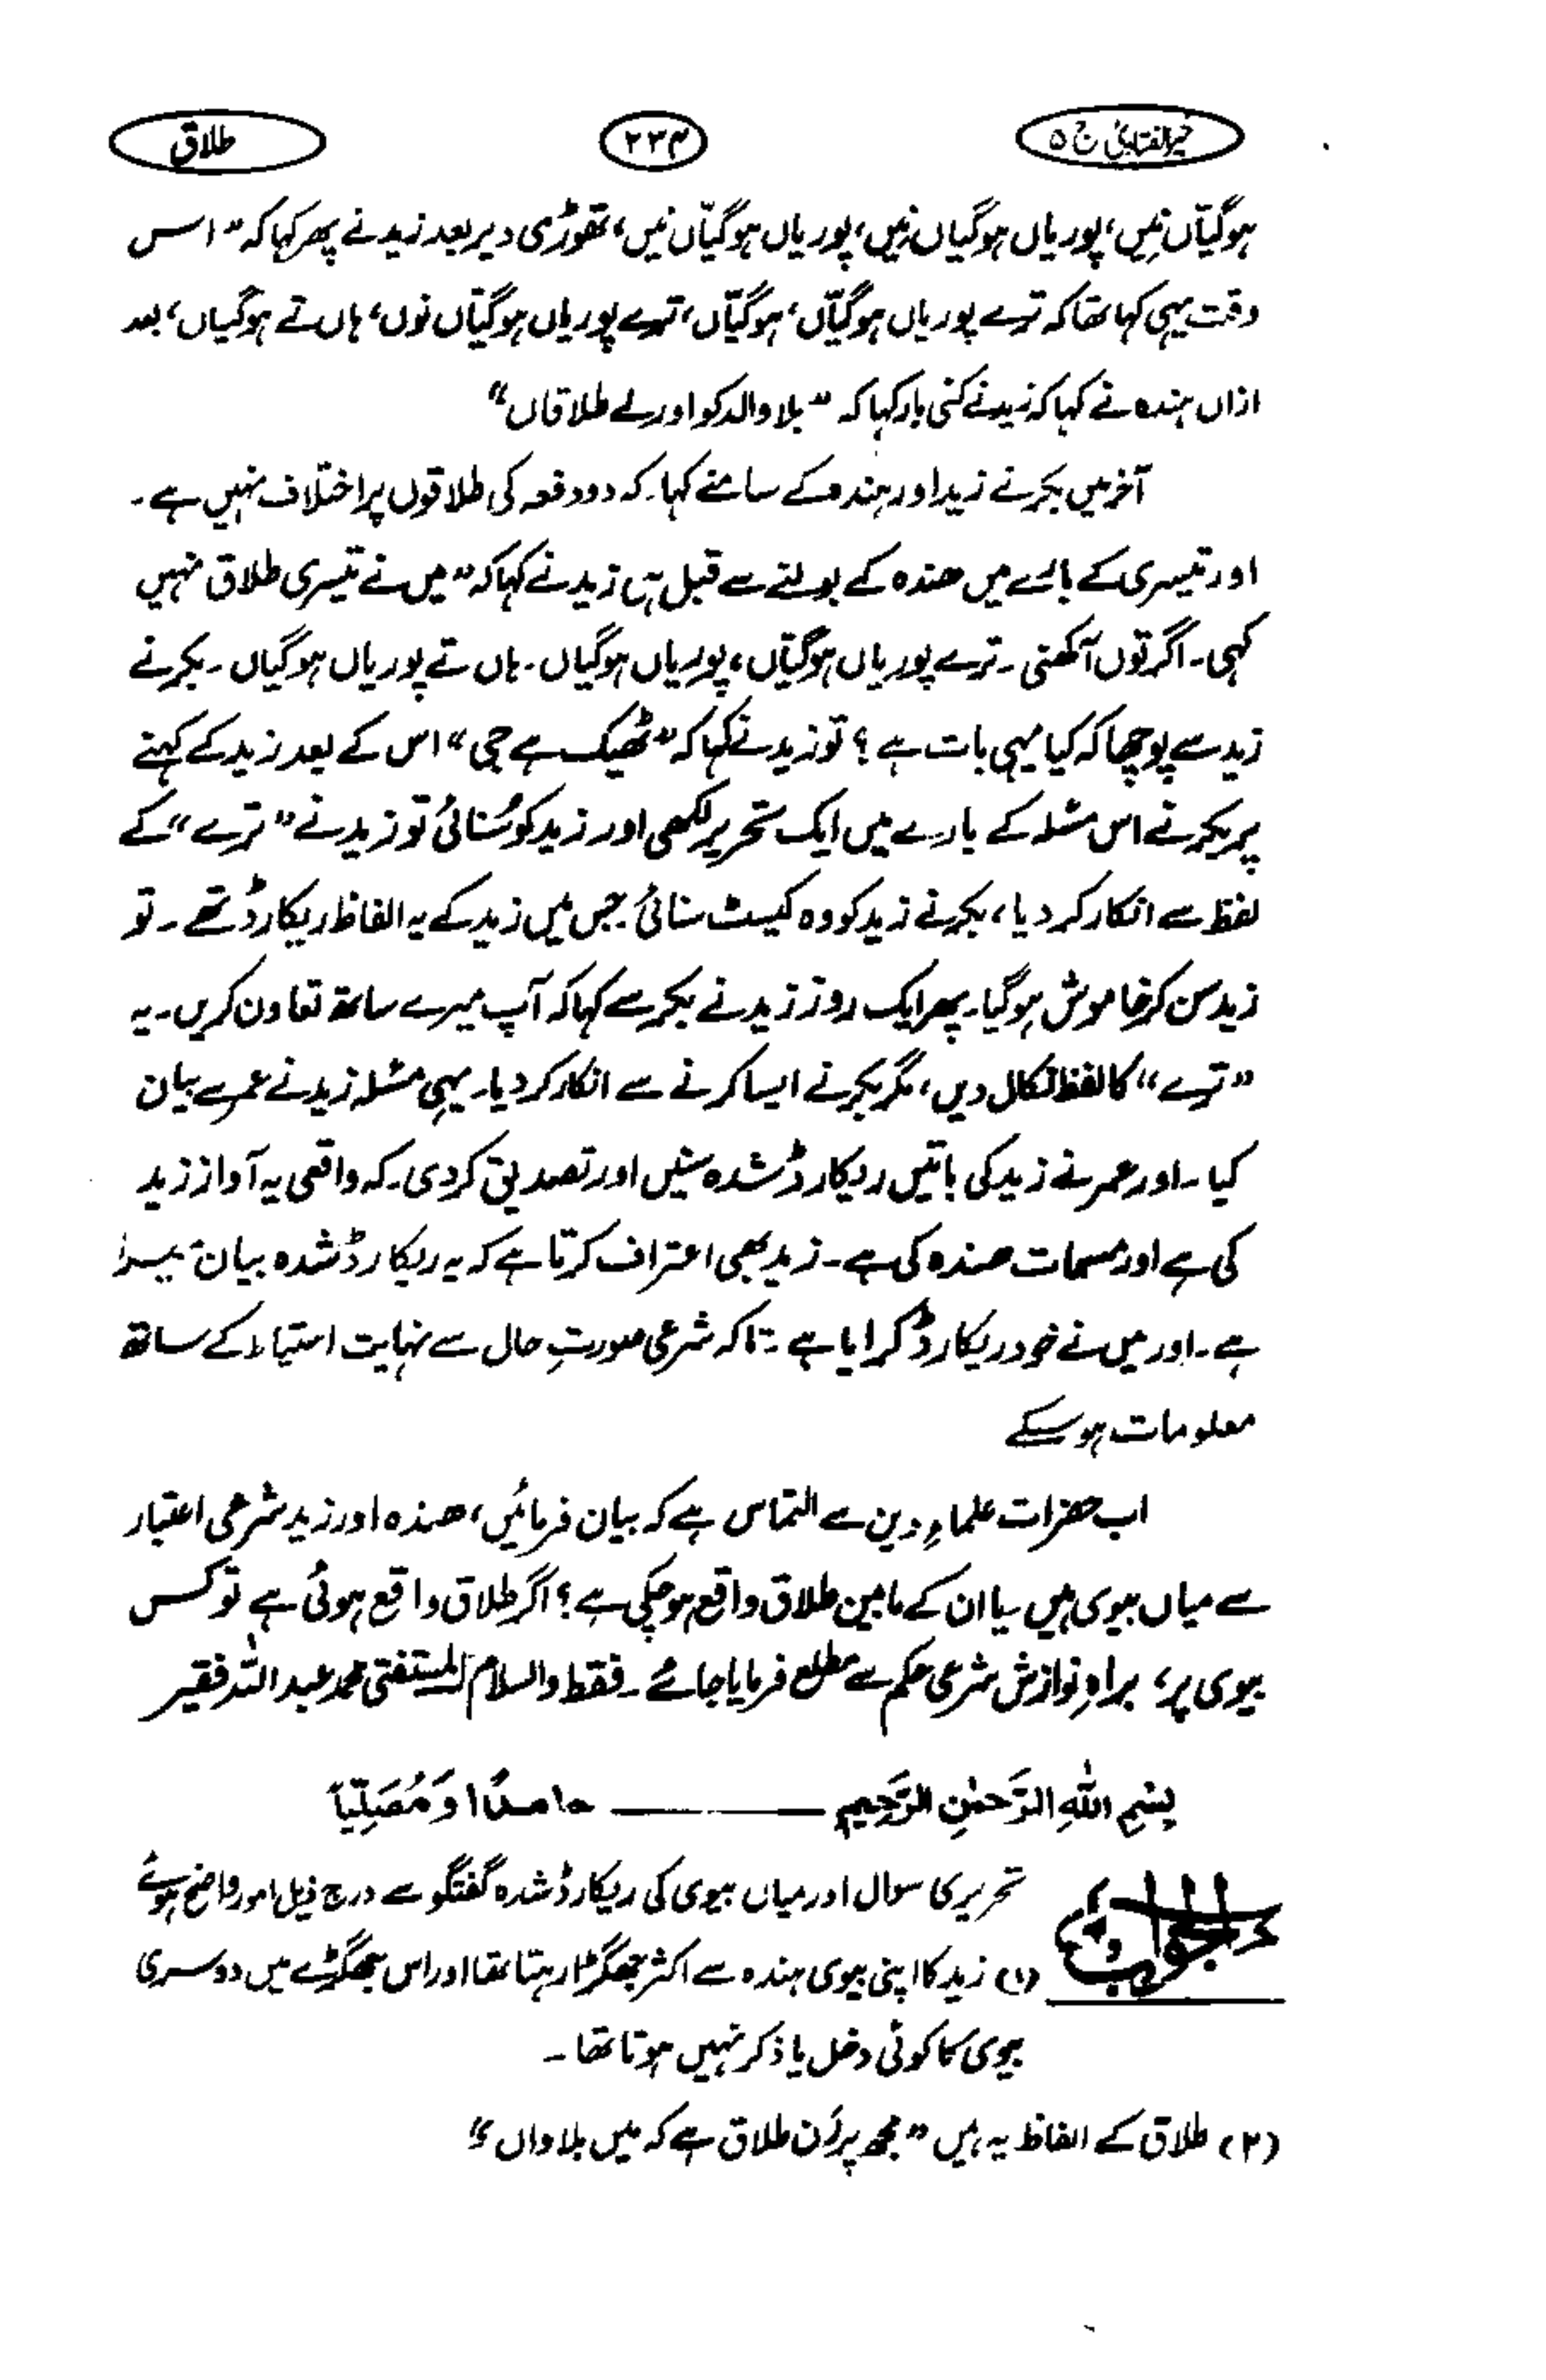 خیر الفتاویٰ ج ۵
۲۳۴
طلاق
ہوگیّاں نیں، پوریاں ہوگیاں نیں، پوریاں ہوگیّاں نیں، تھوڑی دیر بعد زید نے پھر کہا کہ ” اس
وقت یہی کہا تھا کہ ترے پوریاں ہوگیّاں، ہوگیّاں، ترے پوریاں ہوگیّاں نوں، ہاں تے ہوگیاں، بعد
ازاں ہندہ نے کہا کہ زید نے کئی بار کہا کہ ” بلا والد کو اور لے طلاقاں“
آخر میں بکر نے زید اور ہندہ کے سامنے کہا۔ کہ دو دفعہ کی طلاقوں پر اختلاف نہیں ہے۔
اور تیسری کے بارے میں ھندہ کے بولنے سے قبل ہی زید نے کہا کہ ” میں نے تیسری طلاق نہیں
کہی۔ اگر توں آکھنی۔ ترے پوریاں ہوگیّاں، پوریاں ہوگیاں۔ ہاں تے پوریاں ہوگیاں۔ بکر نے
زید سے پوچھا کہ کیا یہی بات ہے؟ تو زید نے کہا کہ ” ٹھیک ہے جی“ اس کے بعد زید کے کہنے
پر بکر نے اس مسئلہ کے بارے میں ایک تحریر لکھی اور زید کو سُنائی تو زید نے ” ترے“ کے
لفظ سے انکار کر دیا، بکر نے زید کو وہ کیسٹ سنائی جس میں زید کے یہ الفاظ ریکارڈ تھے۔ تو
زید سن کر خاموش ہوگیا۔ پھر ایک روز زید نے بکر سے کہا کہ آپ میرے ساتھ تعاون کریں۔ یہ
” ترے“ کا لفظ نکال دیں، مگر بکر نے ایسا کرنے سے انکار کر دیا۔ یہی مسئلہ زید نے عمر سے بیان
کیا۔ اور عمر نے زید کی باتیں ریکارڈ شدہ سنیں اور تصدیق کر دی۔ کہ واقعی یہ آواز زید
کی ہے اور مسمات ھندہ کی ہے۔ زید بھی اعتراف کرتا ہے کہ یہ ریکارڈ شدہ بیان میرا
ہے۔ اور میں نے خود ریکارڈ کرایا ہے۔ تاکہ شرعی صورتِ حال سے نہایت احتیاط کے ساتھ
معلومات ہو سکے
اب حضرات علماءِ دین سے التماس ہے کہ بیان فرمائیں، ھندہ اور زید شرعی اعتبار
سے میاں بیوی ہیں یا ان کے مابین طلاق واقع ہو چکی ہے؟ اگر طلاق واقع ہوئی ہے تو کس
بیوی پر، براہِ نوازش شرعی حکم سے مطلع فرمایا جائے۔ فقط والسلام المستفتی محمد عبد اللہ فقیر
بِسْمِ اللهِ الرَّحْمٰنِ الرَّحِيْمِ ـــــــ حامدًا وَّمُصَلِّيًا
الجواب
تحریری سوال اور میاں بیوی کی ریکارڈ شدہ گفتگو سے درج ذیل امور واضح ہوئے
(۱) زید کا اپنی بیوی ہندہ سے اکثر جھگڑا رہتا تھا اور اس جھگڑے میں دوسری
بیوی کا کوئی دخل یا ذکر نہیں ہوتا تھا۔
(۲) طلاق کے الفاظ یہ ہیں ” مجھ پر زن طلاق ہے کہ میں بلاواں“